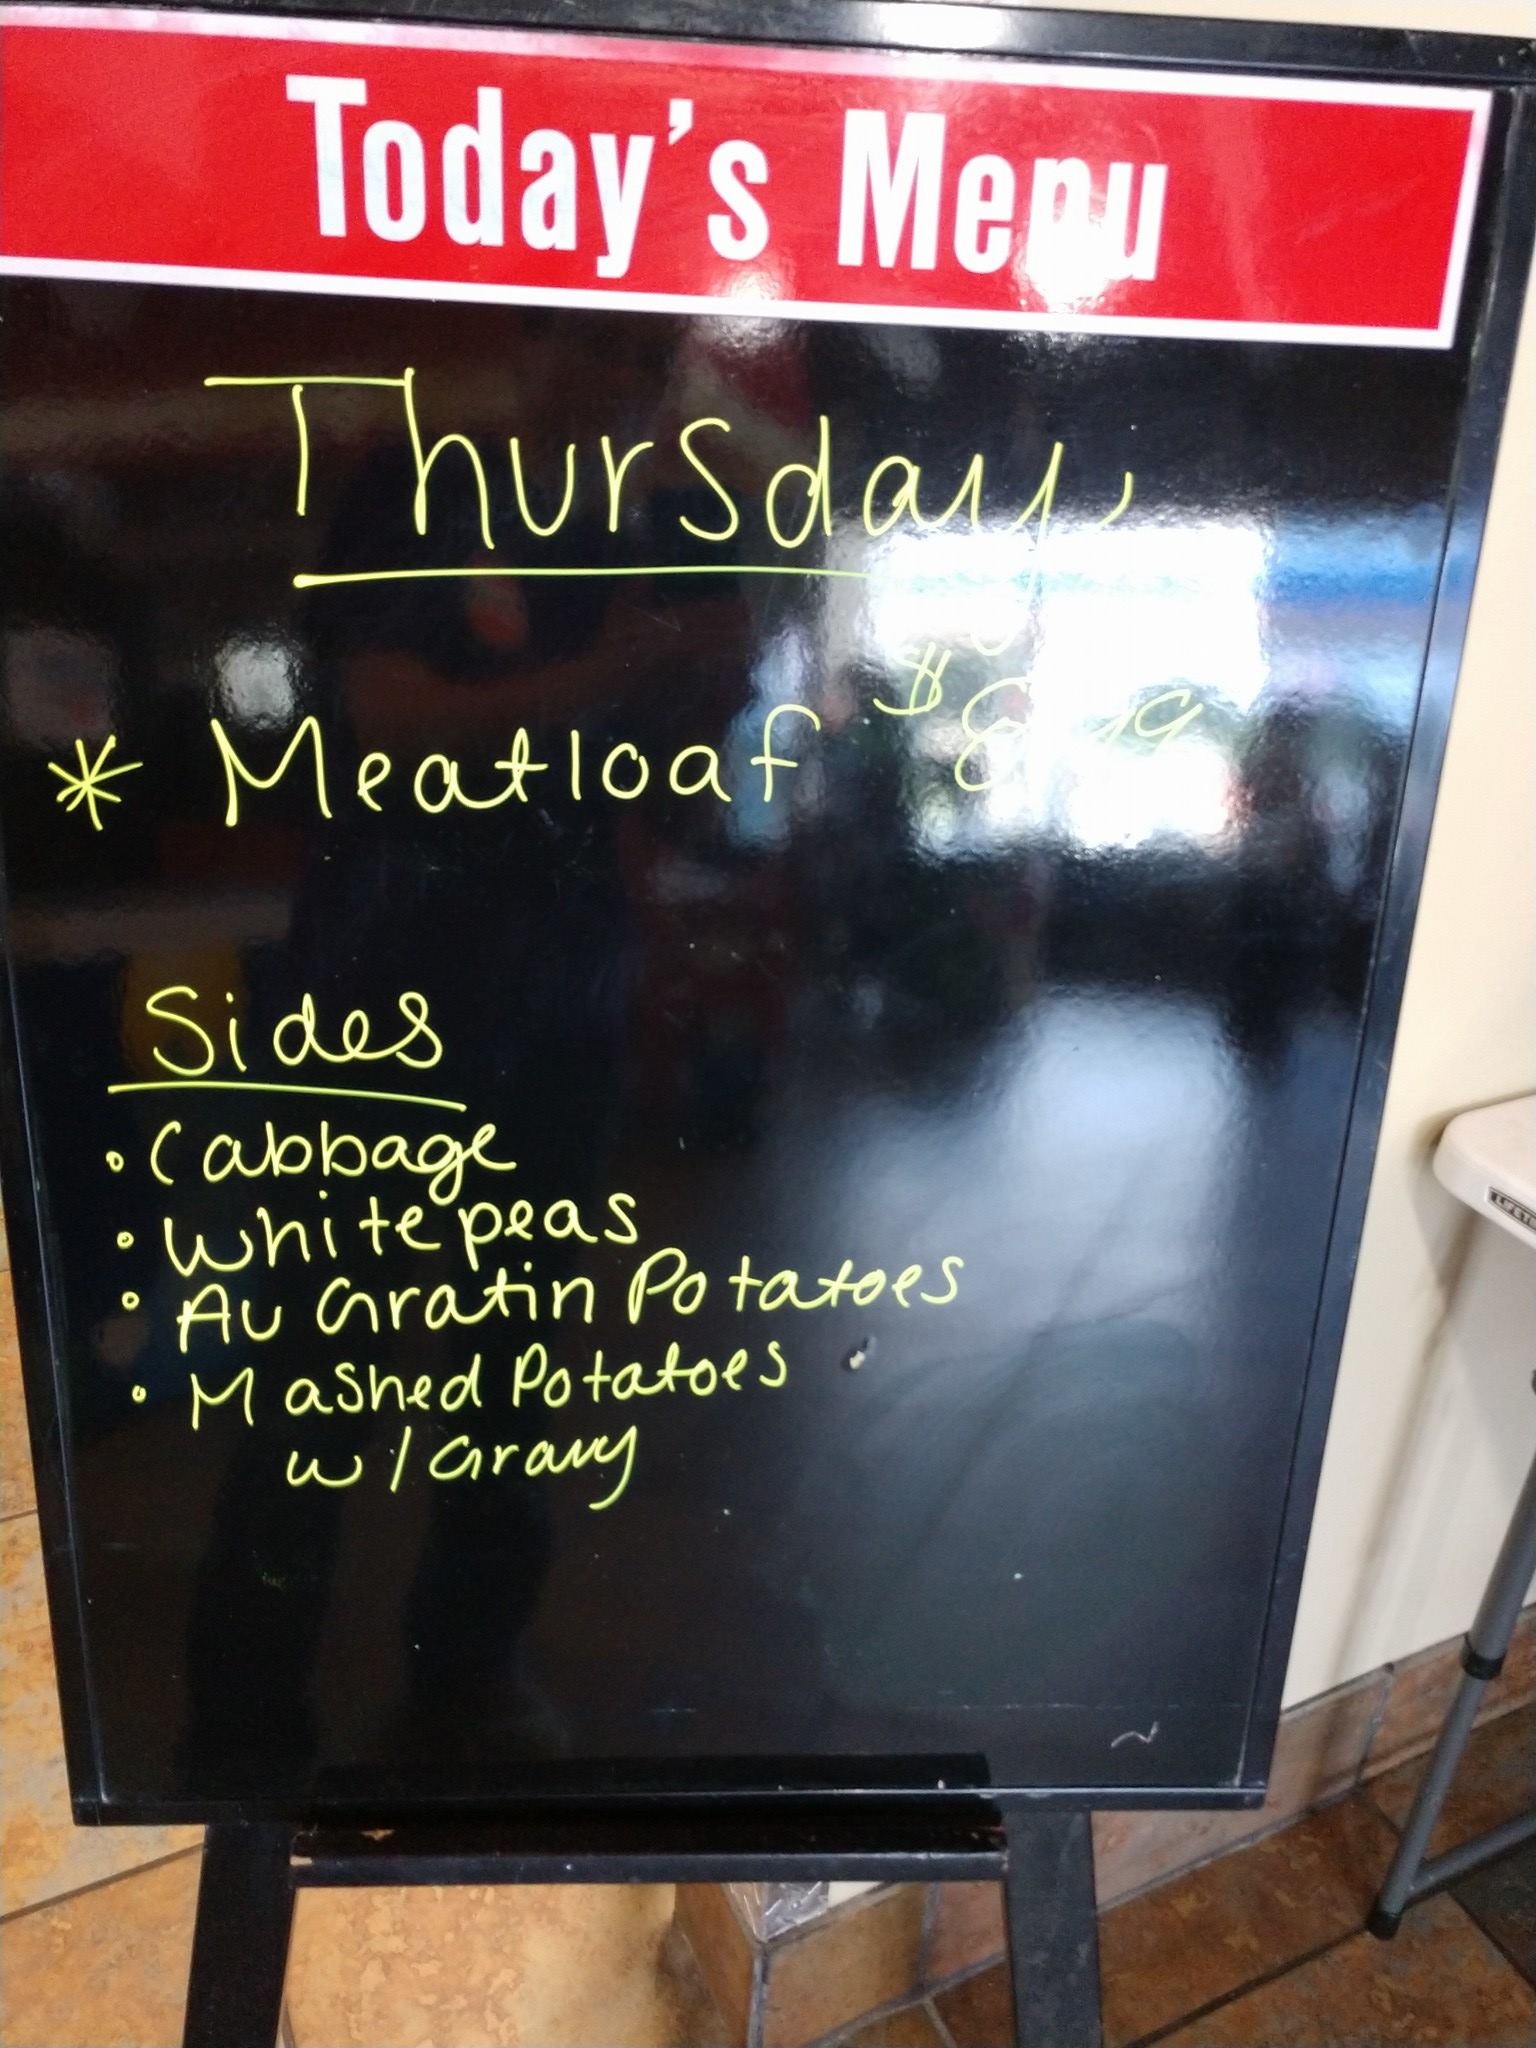 Today's Menu
Thursday,
* Meatloaf
Sides
• Cabbage
• White peas
• Au Gratin Potatoes
• Mashed Potatoes
w/ Gravy